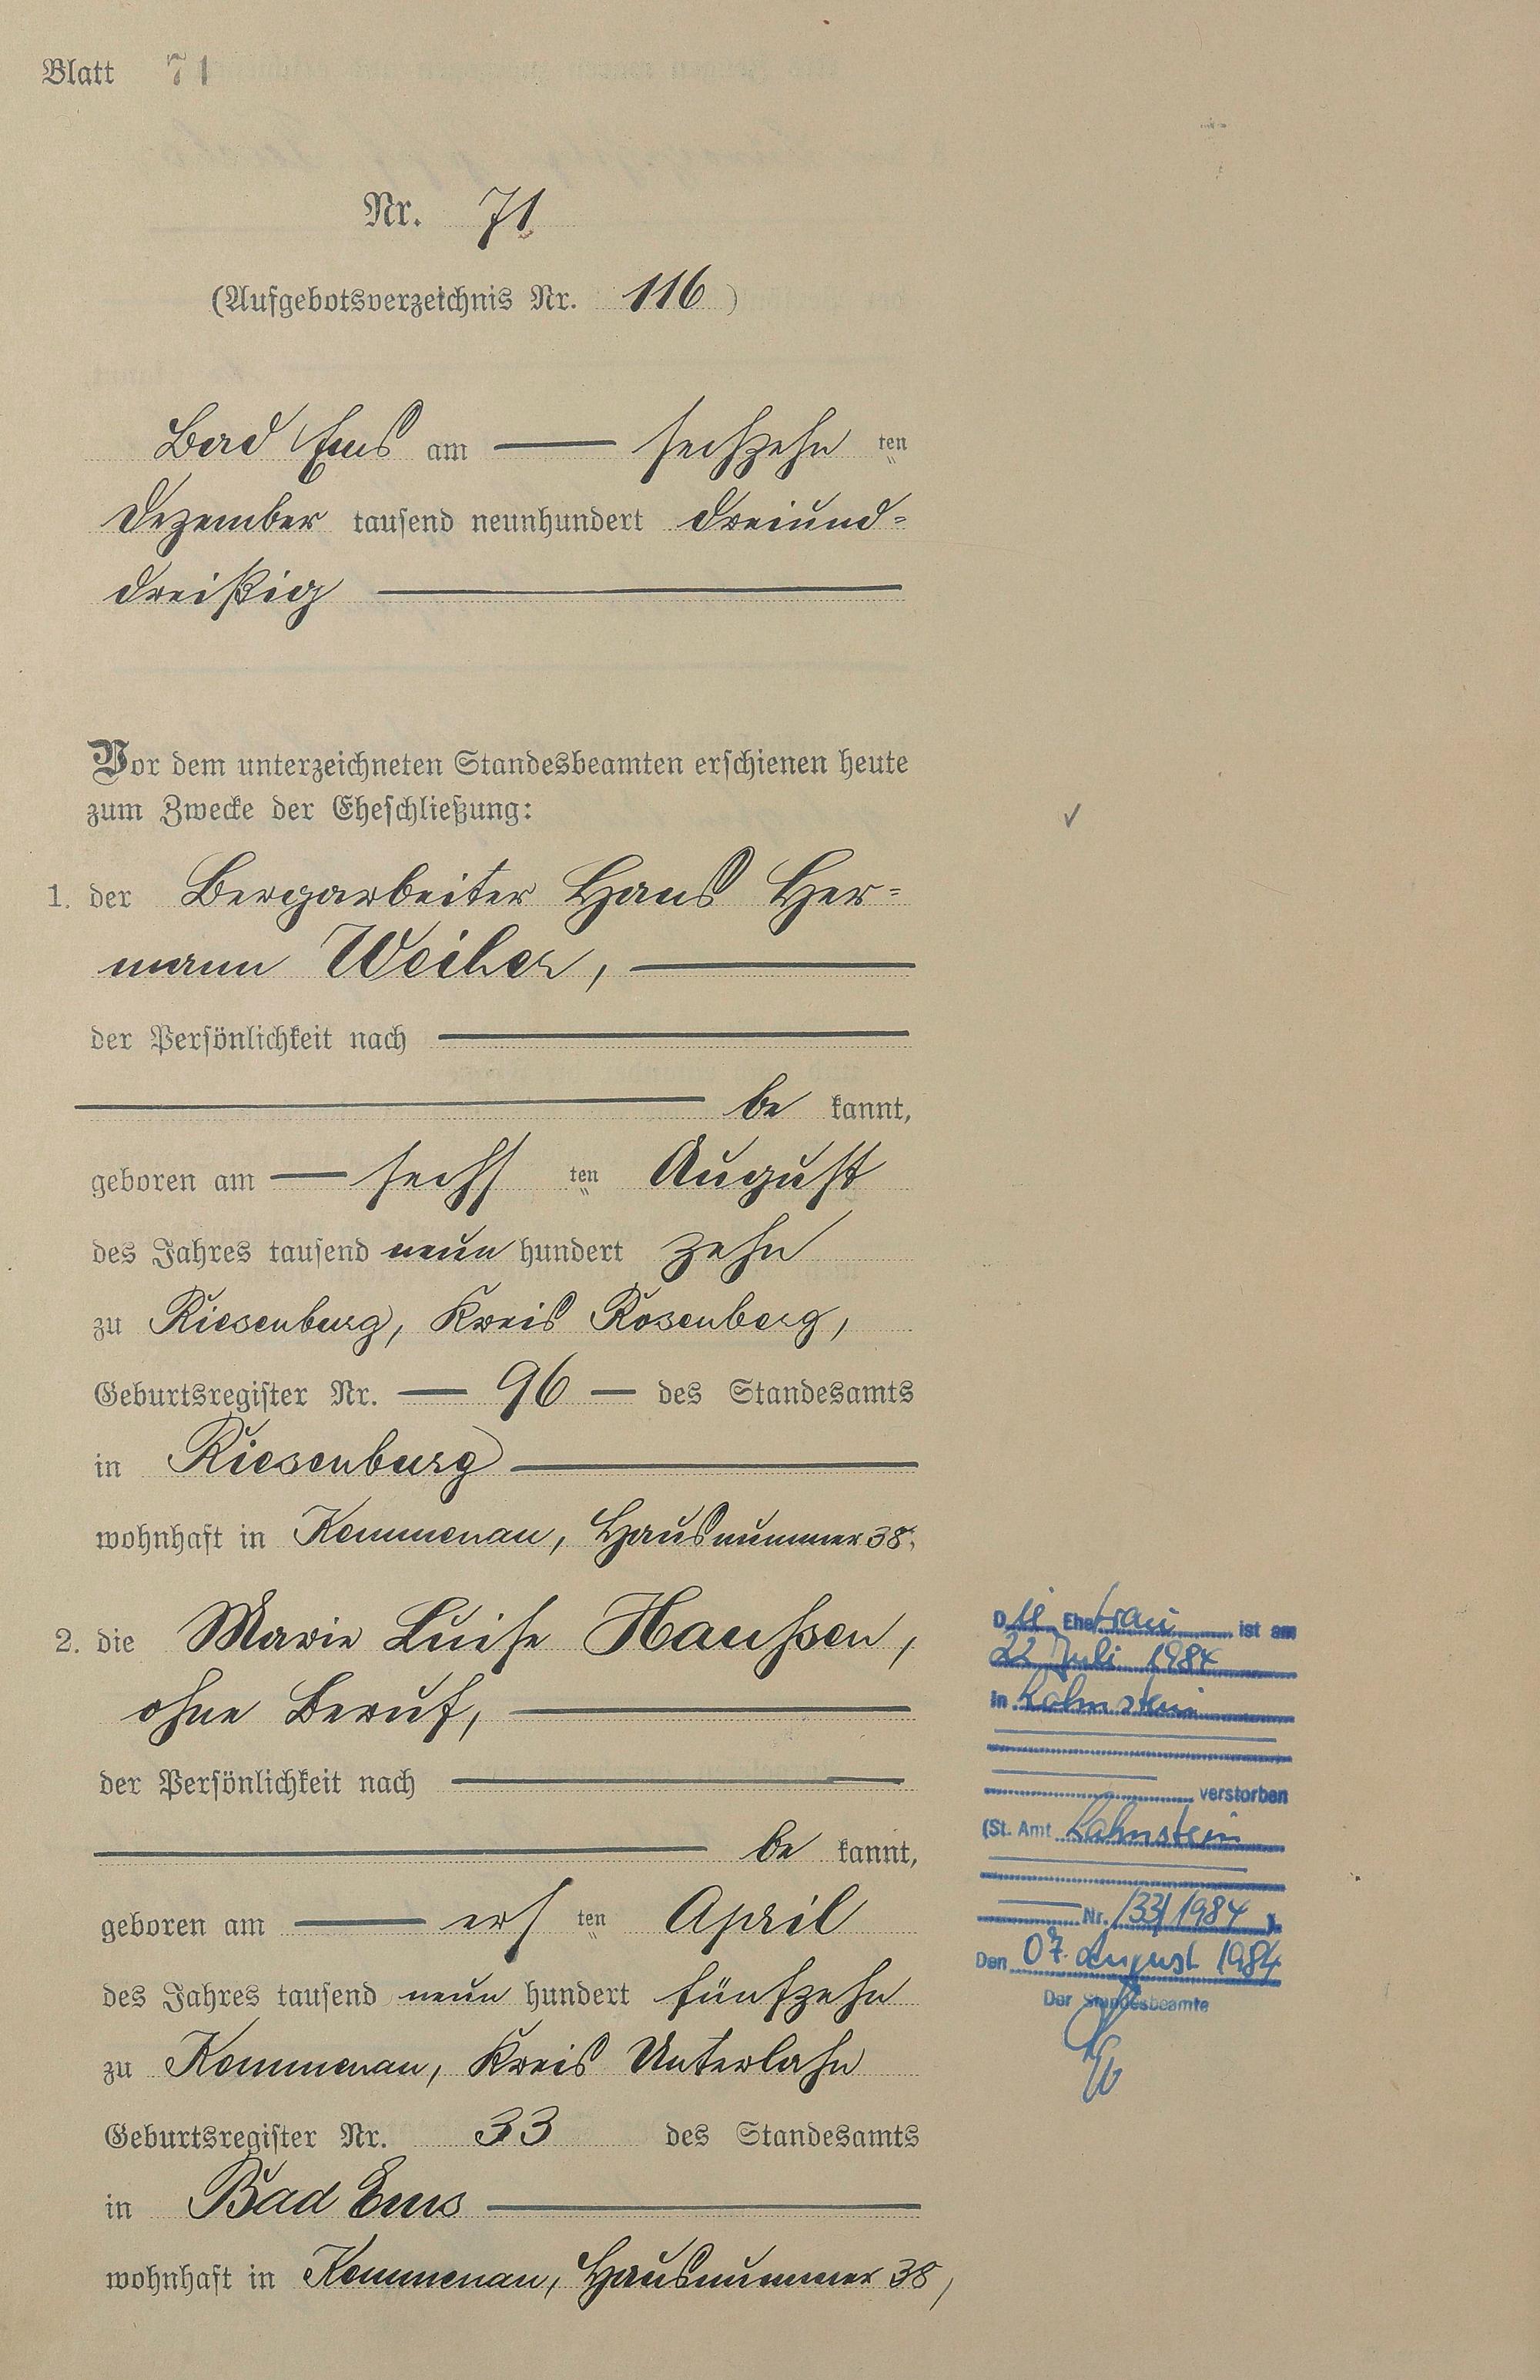 Blatt 71
Nr. 71
(Aufgebotsverzeichnis Nr. 116)
Bad Ems am sechzehn ten
Dezember tausend neunhundert dreiund-
dreißig
Vor dem unterzeichneten Standesbeamten erschienen heute
zum Zwecke der Eheschließung:
1. der Bergarbeiter Hans Her-
mann Weiher,
der Persönlichkeit nach
be kannt,
geboren am sechs ten August
des Jahres tausend neun hundert zehn
zu Riesenburg, Kreis Rosenberg,
Geburtsregister Nr. 96 des Standesamts
in Riesenburg
wohnhaft in Kemmenau, Hausnummer 38.
2. die Marie Luise Haußen,
ohne Beruf,
der Persönlichkeit nach
be kannt,
geboren am ers ten April
des Jahres tausend neun hundert fünfzehn
zu Kemmenau, Kreis Unterlahn
Geburtsregister Nr. 33 des Standesamts
in Bad Ems
wohnhaft in Kemmenau, Hausnummer 38,
Die Ehefrau ist am
22 Juli 1984
in Lahnstein
verstorben
(St. Amt Lahnstein
Nr. 133/1984 ).
Den 07. August 1984
Der Standesbeamte